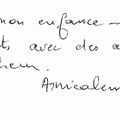 mon enfance -
ts avec des a
heur.
Amicalem